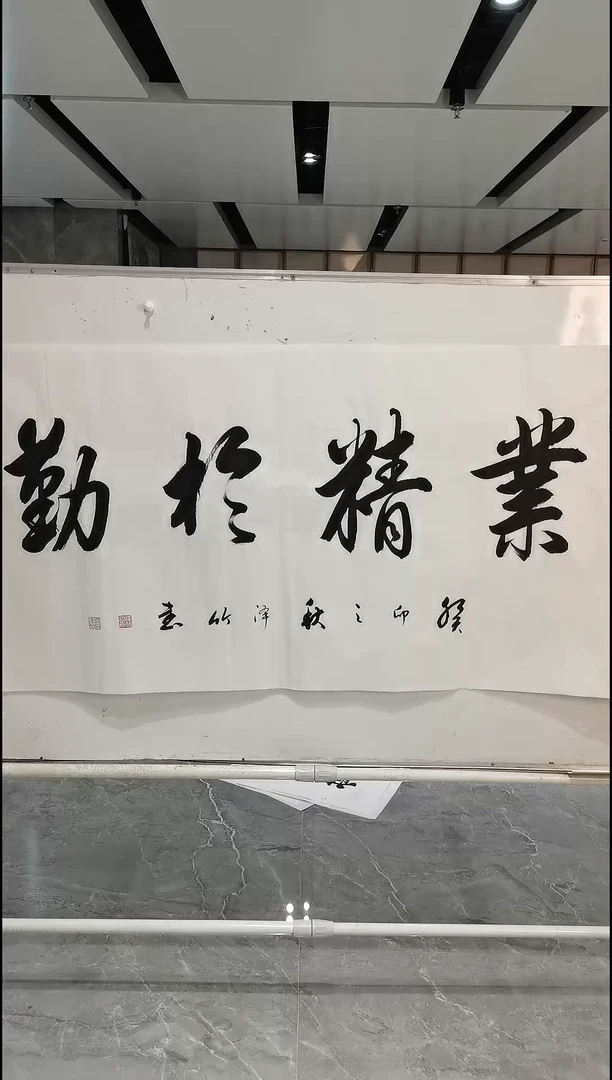 業精於勤
癸卯之秋泽竹書